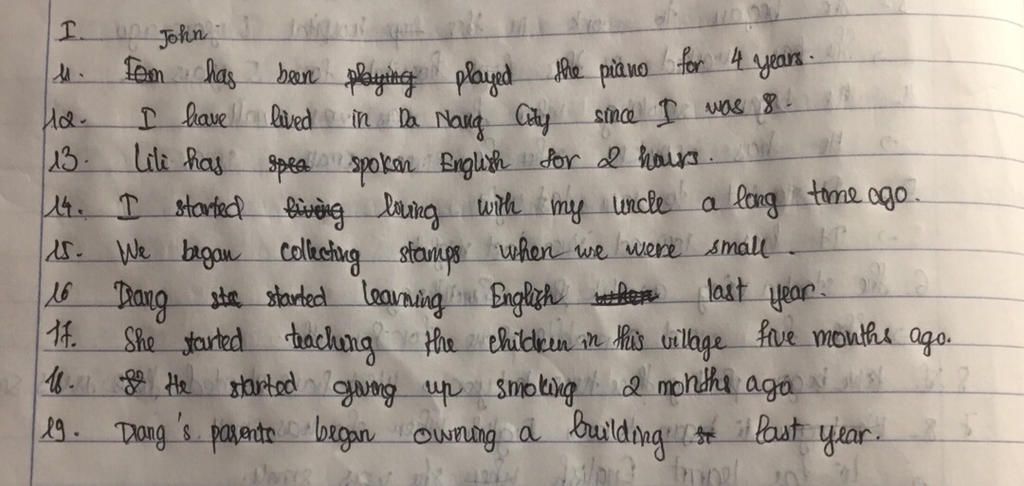 I. John
11. Tom has been playing played the piano for 4 years.
12. I have lived in Da Nang City since I was 8.
13. Lili has spea spoken English for 2 hours.
14. I started living living with my uncle a long time ago.
15. We began collecting stamps when we were small.
16 Trang sta started learning English when last year.
17. She started teaching the children in this village five months ago.
18. He started giving up smoking 2 months ago
19. Trang's parents began owning a building st last year.